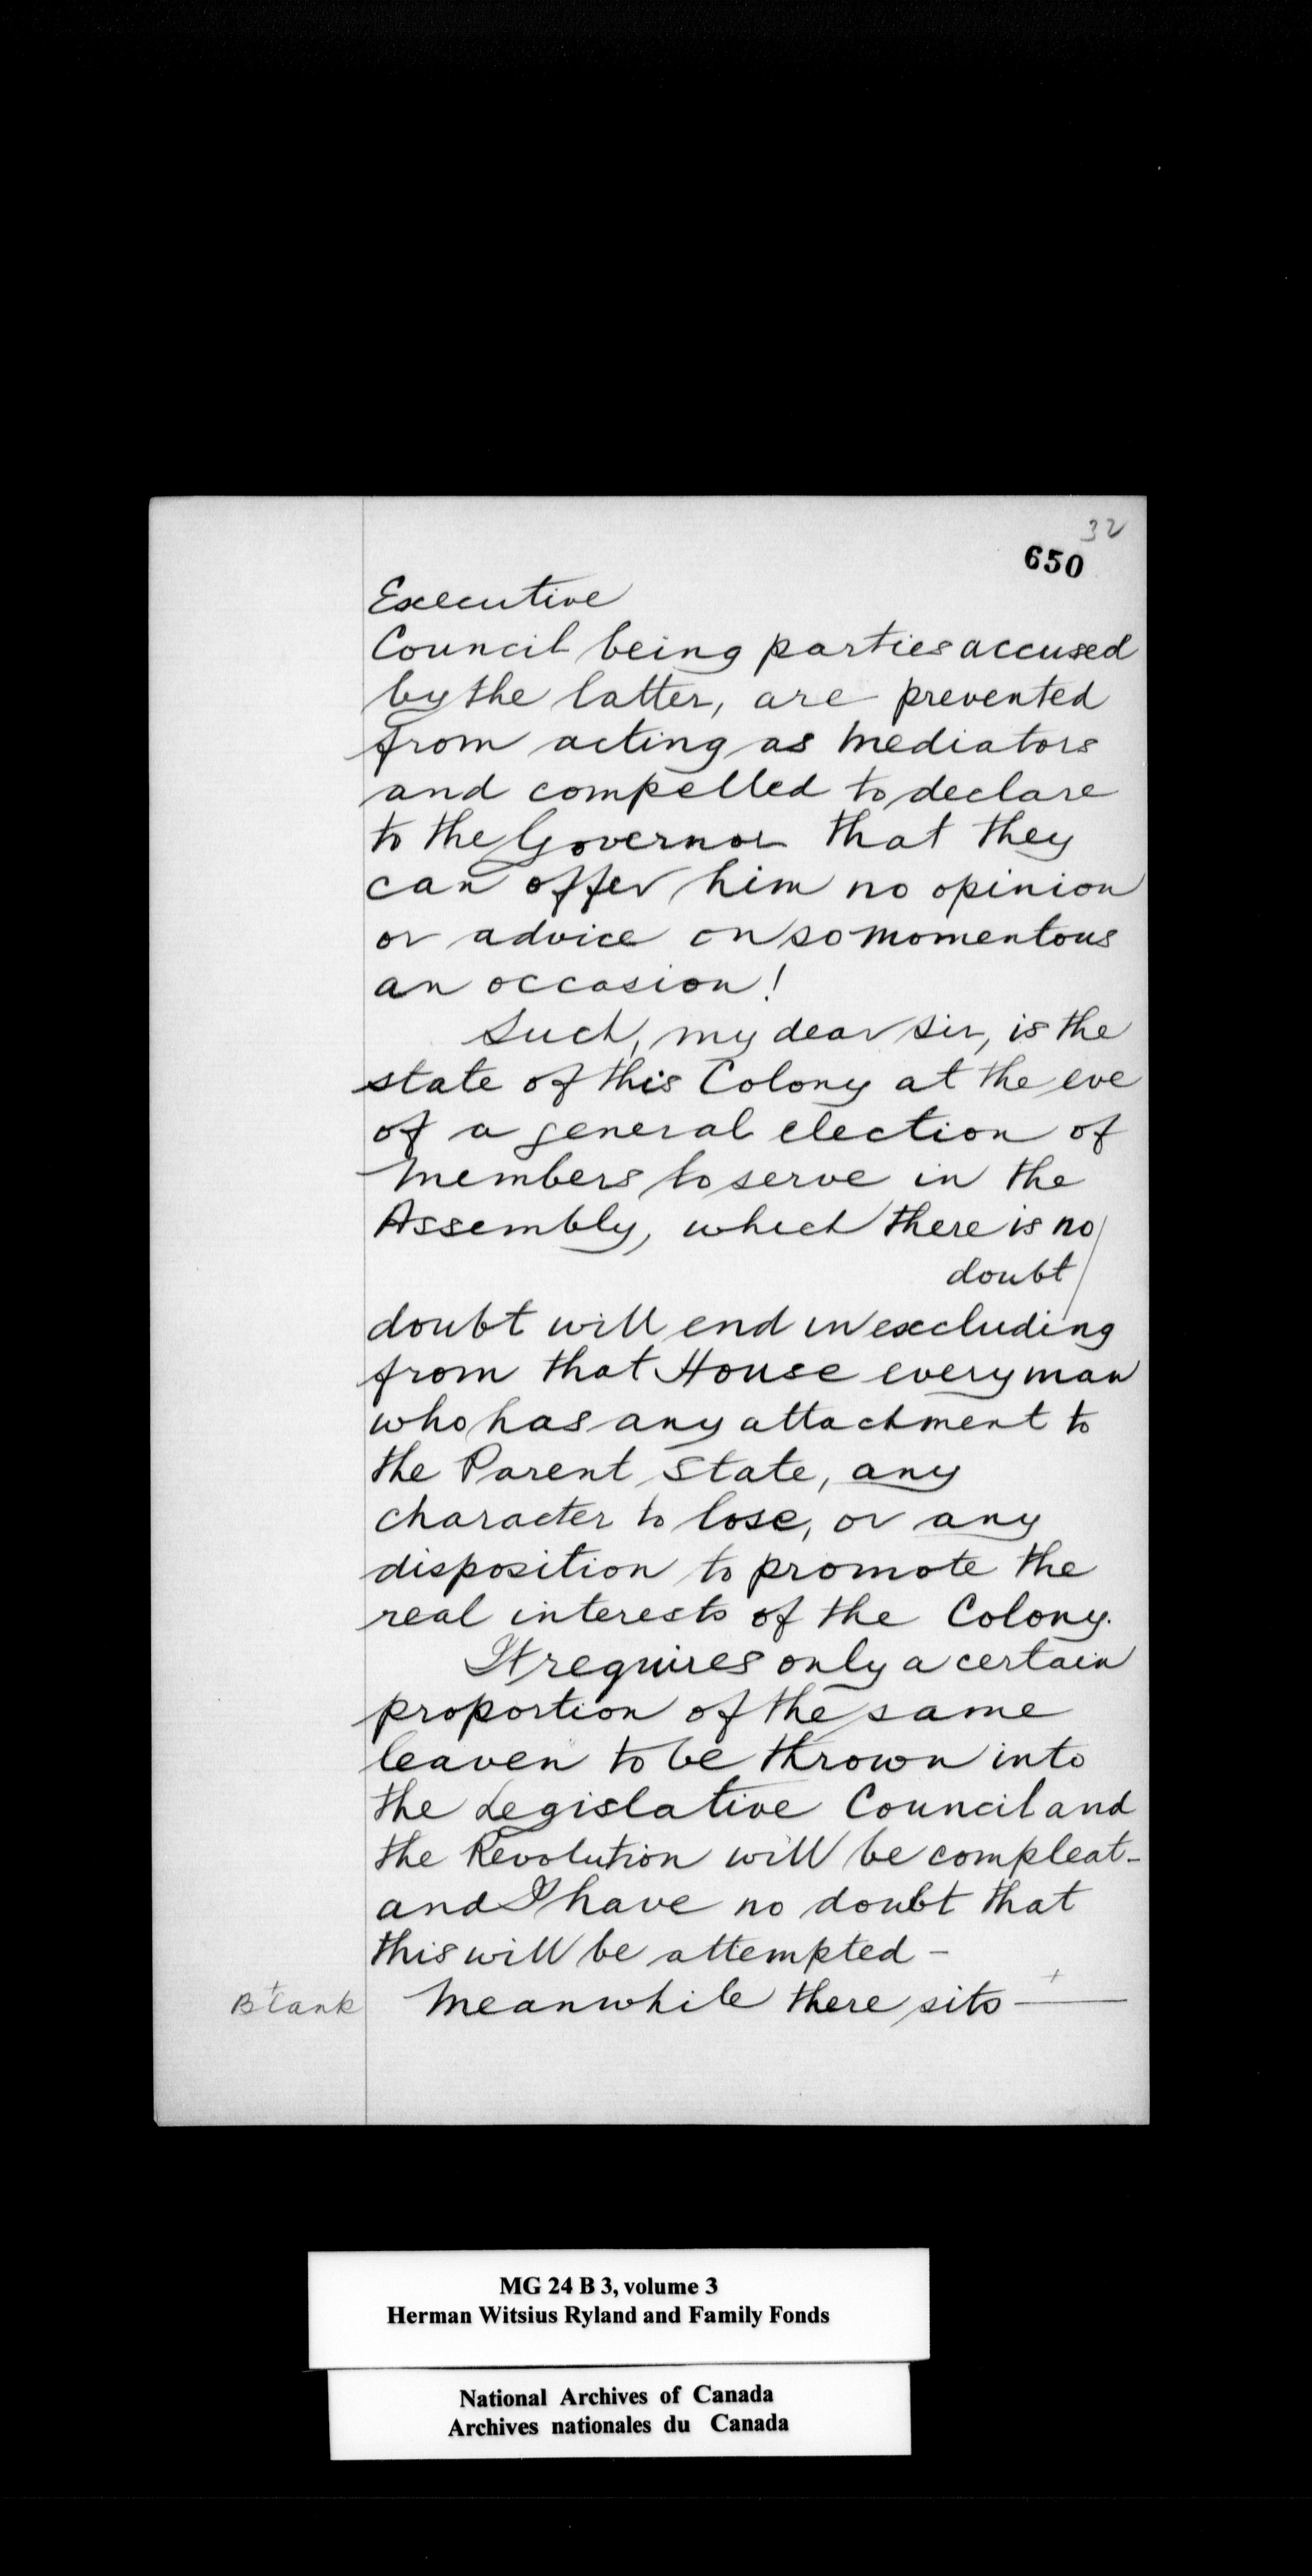 32
650
Executive
Council being parties accused
by the latter, are prevented
from acting as mediators
and compelled to declare
to the Governor that they
can offer him no opinion
or advice on so momentous
an occasion!
Such, my dear sir, is the
state of this Colony at the eve
of a general election of
members to serve in the
Assembly, which there is no
doubt
doubt will end in excluding
from that House every man
who has any attachment to
the Parent State, any
character to lose, or any
disposition to promote the
real interests of the Colony.
It requires only a certain
proportion of the same
leaven to be thrown into
the Legislative Council and
the Revolution will be compleat-
and I have no doubt that
this will be attempted -
+
Blank Meanwhile there sits + ———
MG 24 B 3, volume 3
Herman Witsius Ryland and Family Fonds
National Archives of Canada
Archives nationales du Canada